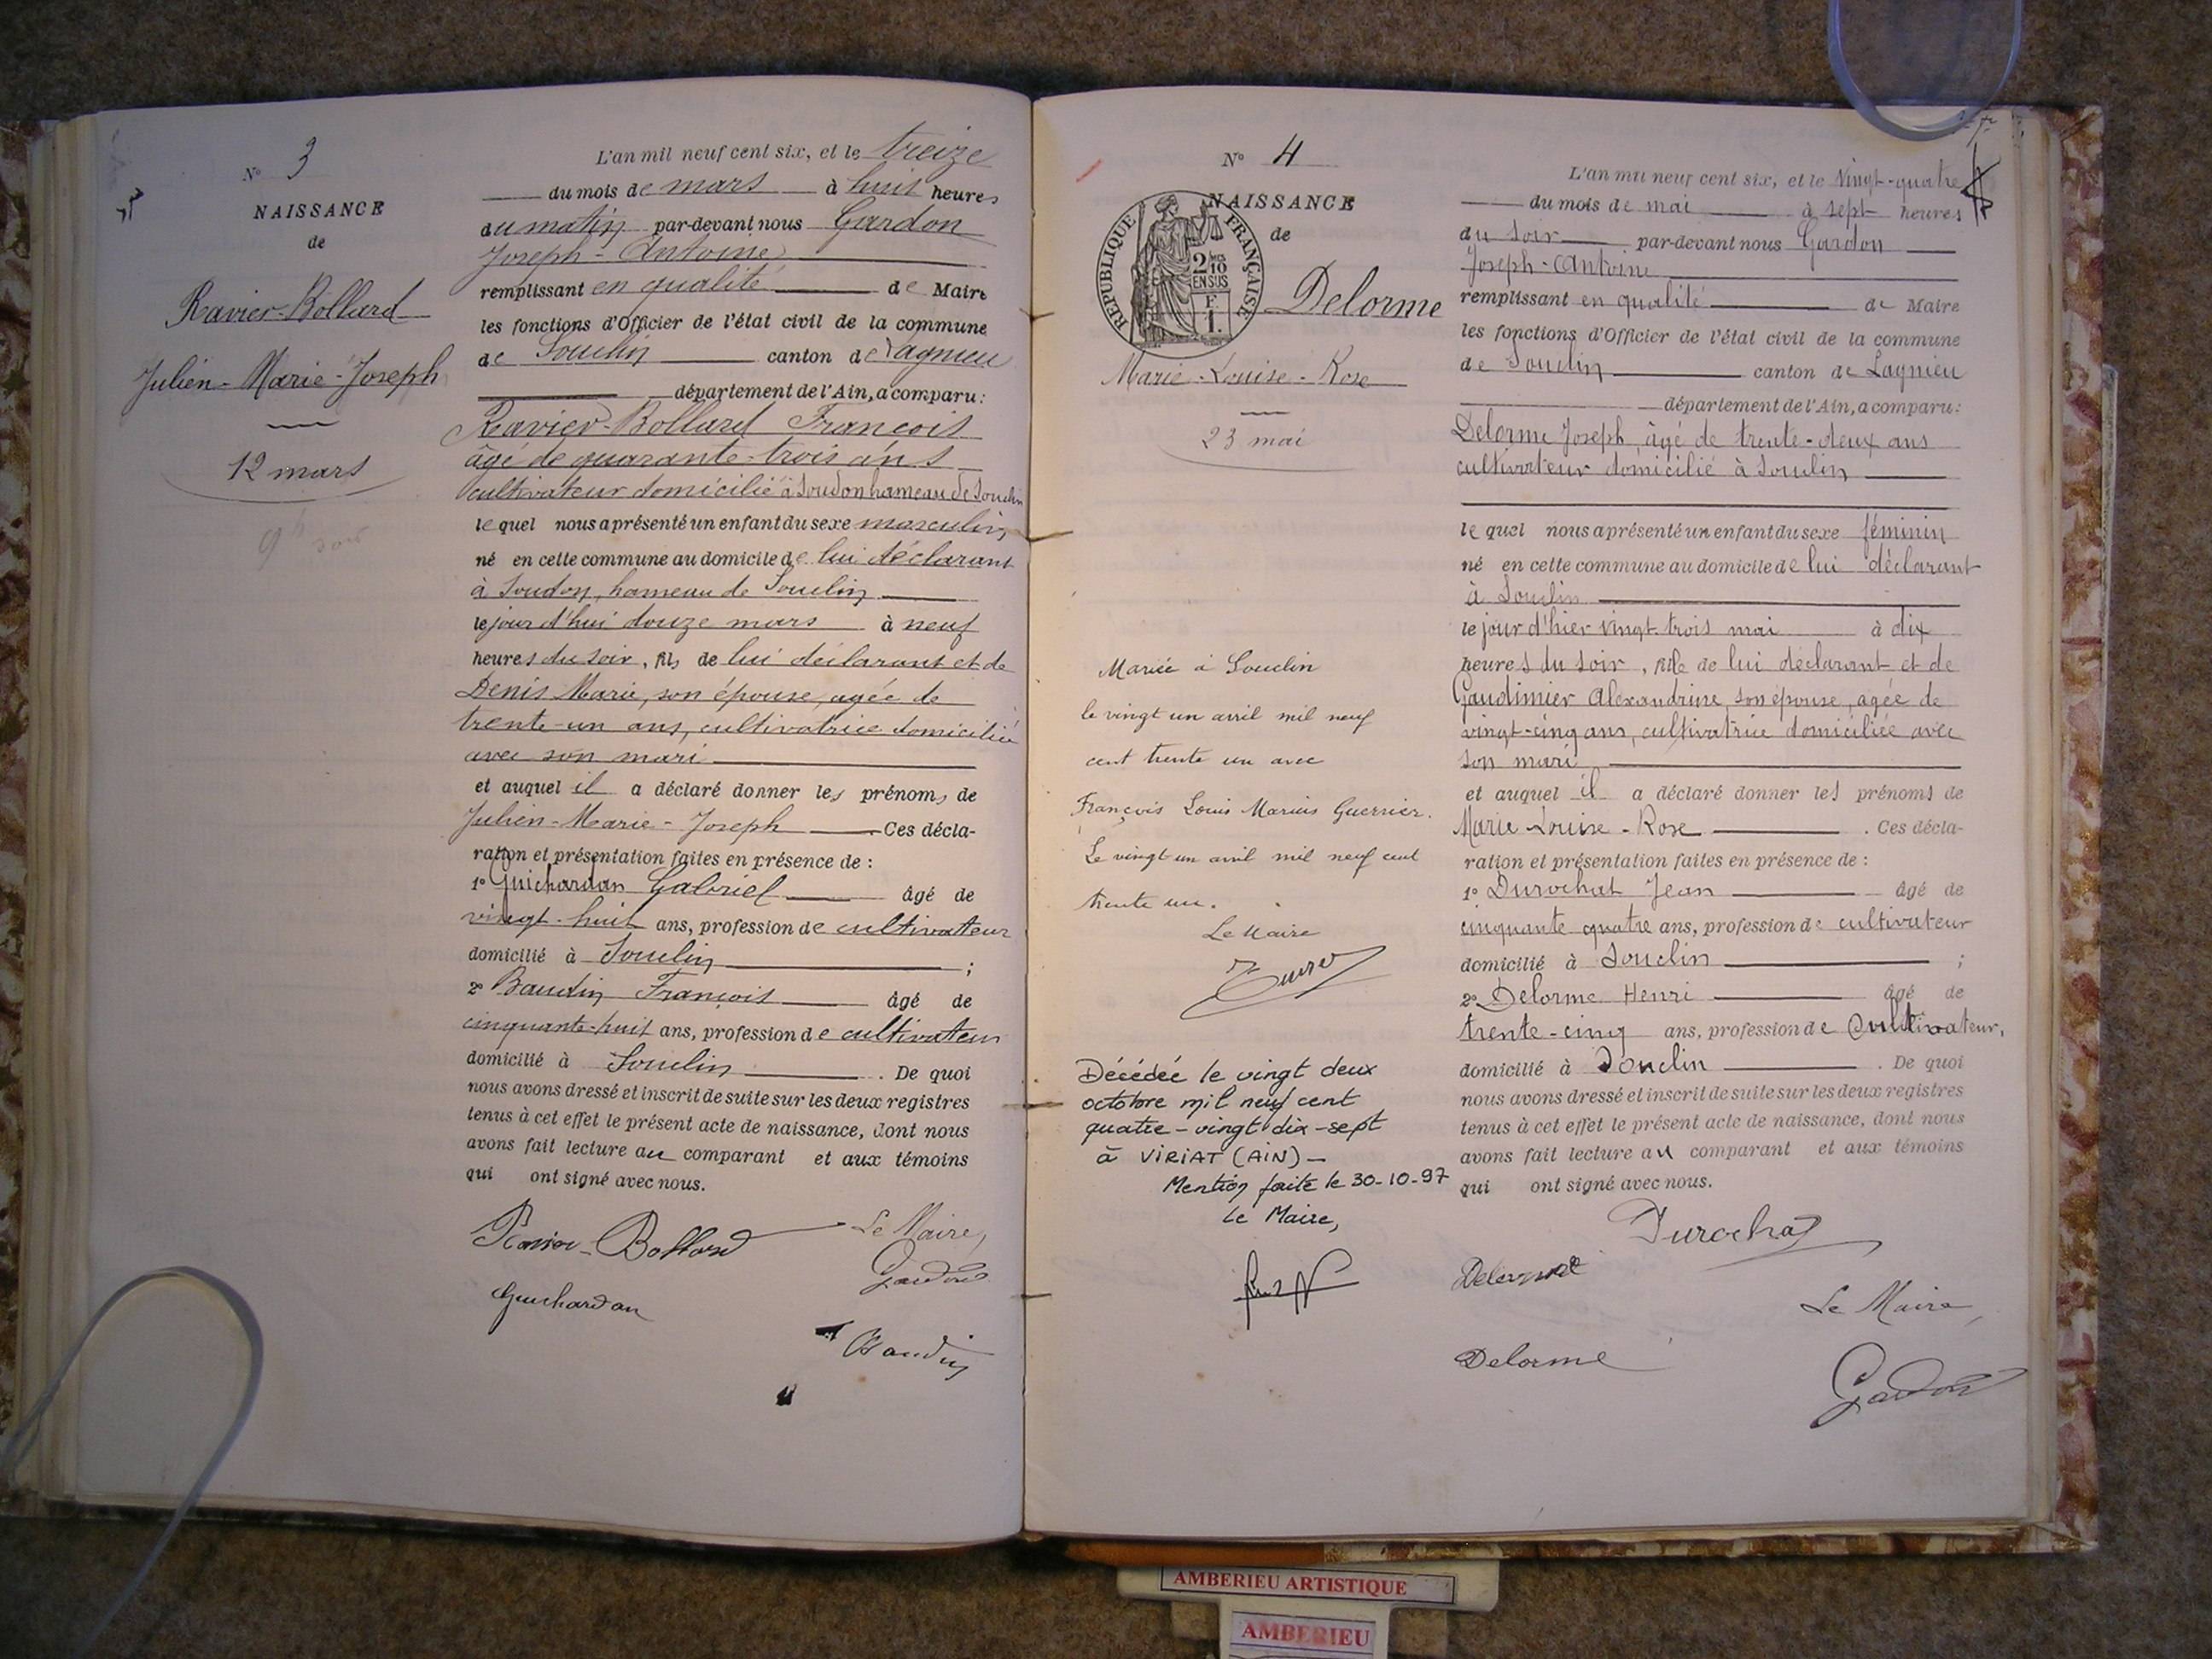 N° 3
NAISSANCE
de
Ravier-Bollard
Julien-Marie-Joseph
12 mars
9h soir
L'an mil neuf cent six, et le treize
du mois de mars à huit heures
du matin par-devant nous Gardon
Joseph-Antoine
remplissant en qualité de Maire
les fonctions d'Officier de l'état civil de la commune
de Souclin canton de Lagnieu
département de l'Ain, a comparu:
Ravier-Bollard François
âgé de quarante-trois ans
cultivateur domicilié à Soudon hameau de Souclin
lequel nous a présenté un enfant du sexe masculin,
né en cette commune au domicile de lui déclarant
à Soudon, hameau de Souclin
le jour d'hui douze mars à neuf
heures du soir, fils de lui déclarant et de
Denis Marie, son épouse, agée de
trente-un ans, cultivatrice domiciliée
avec son mari
et auquel il a déclaré donner les prénoms de
Julien-Marie-Joseph Ces décla-
ration et présentation faites en présence de :
1° Guichardan Gabriel âgé de
vingt-huit ans, profession de cultivateur
domicilié à Souclin ;
2° Baudin François âgé de
cinquante-huit ans, profession de cultivateur
domicilié à Souclin . De quoi
nous avons dressé et inscrit de suite sur les deux registres
tenus à cet effet le présent acte de naissance, dont nous
avons fait lecture au comparant et aux témoins
qui ont signé avec nous.
Ravier-Bollard Le Maire,
Gardon
Guichardan
Baudin
N° 4
NAISSANCE
de
RÉPUBLIQUE FRANÇAISE
2/10
EN SUS
F.
1.
Delorme
Marie-Louise-Rose
23 mai
Mariée à Souclin
le vingt un avril mil neuf
cent trente un avec
François Louis Marius Guerrier.
Le vingt un avril mil neuf cent
trente un.
Le Maire
Décédée le vingt deux
octobre mil neuf cent
quatre-vingt dix-sept
à VIRIAT (AIN) -
Mention faite le 30-10-97
Le Maire,
L'an mil neuf cent six, et le vingt-quatre
du mois de mai à sept heures
du soir par-devant nous Gardon
Joseph-Antoine
remplissant en qualité de Maire
les fonctions d'Officier de l'état civil de la commune
de Souclin canton de Lagnieu
département de l'Ain, a comparu:
Delorme Joseph, âgé de trente-deux ans
cultivateur domicilié à Souclin
lequel nous a présenté un enfant du sexe féminin
né en cette commune au domicile de lui déclarant
à Souclin
le jour d'hier vingt trois mai à dix
heures du soir, fille de lui déclarant et de
Gaudimier Alexandrine, son épouse, agée de
vingt-cinq ans, cultivatrice domiciliée avec
son mari
et auquel il a déclaré donner les prénoms de
Marie-Louise-Rose . Ces décla-
ration et présentation faites en présence de :
1° Durochat Jean âgé de
cinquante quatre ans, profession de cultivateur
domicilié à Souclin ;
2° Delorme Henri âgé de
trente-cinq ans, profession de Cultivateur,
domicilié à Souclin . De quoi
nous avons dressé et inscrit de suite sur les deux registres
tenus à cet effet le présent acte de naissance, dont nous
avons fait lecture au comparant et aux témoins
qui ont signé avec nous.
Durochat
Delorme
Le Maire,
Delorme
Gardon
AMBERIEU ARTISTIQUE
AMBERIEU